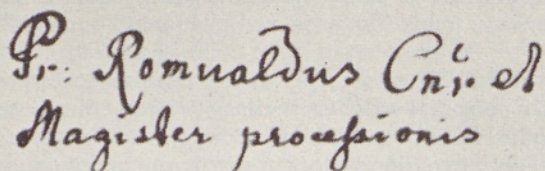 Pr: Romualdus Cnr. et
Magister processionis